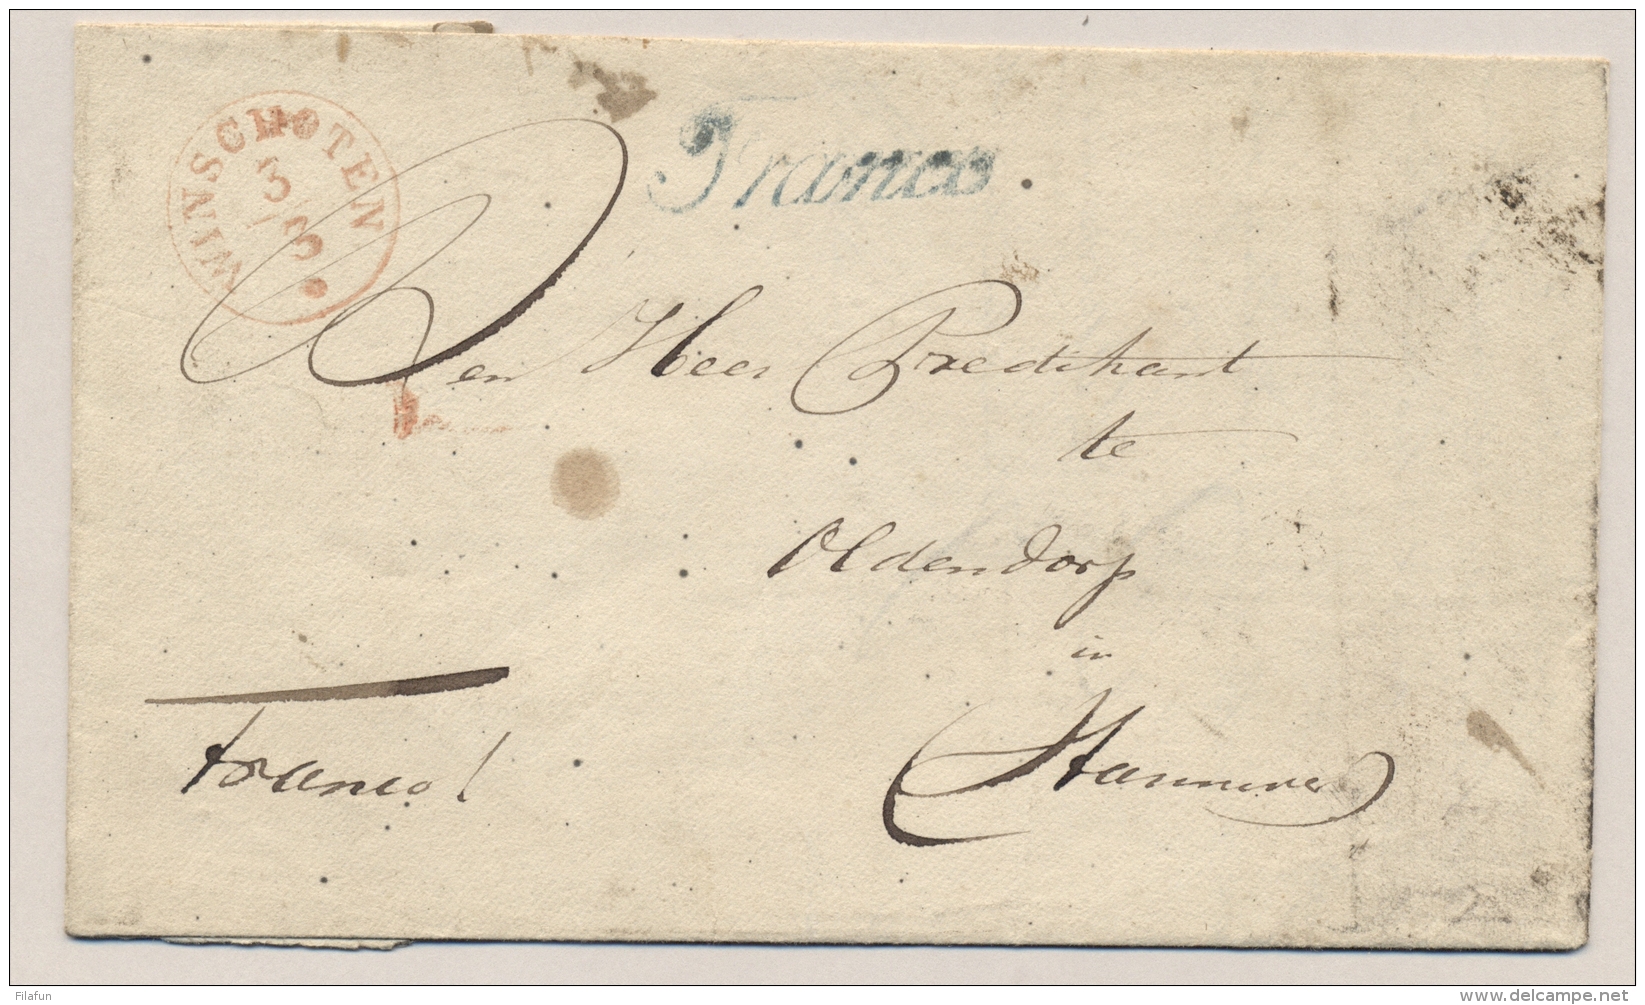 WINSCHOTEN
3/8
Franco
Den Heer Predikant
te
Oldendorp
in
Hannover
franco!
Filafun
www.delcampe.net